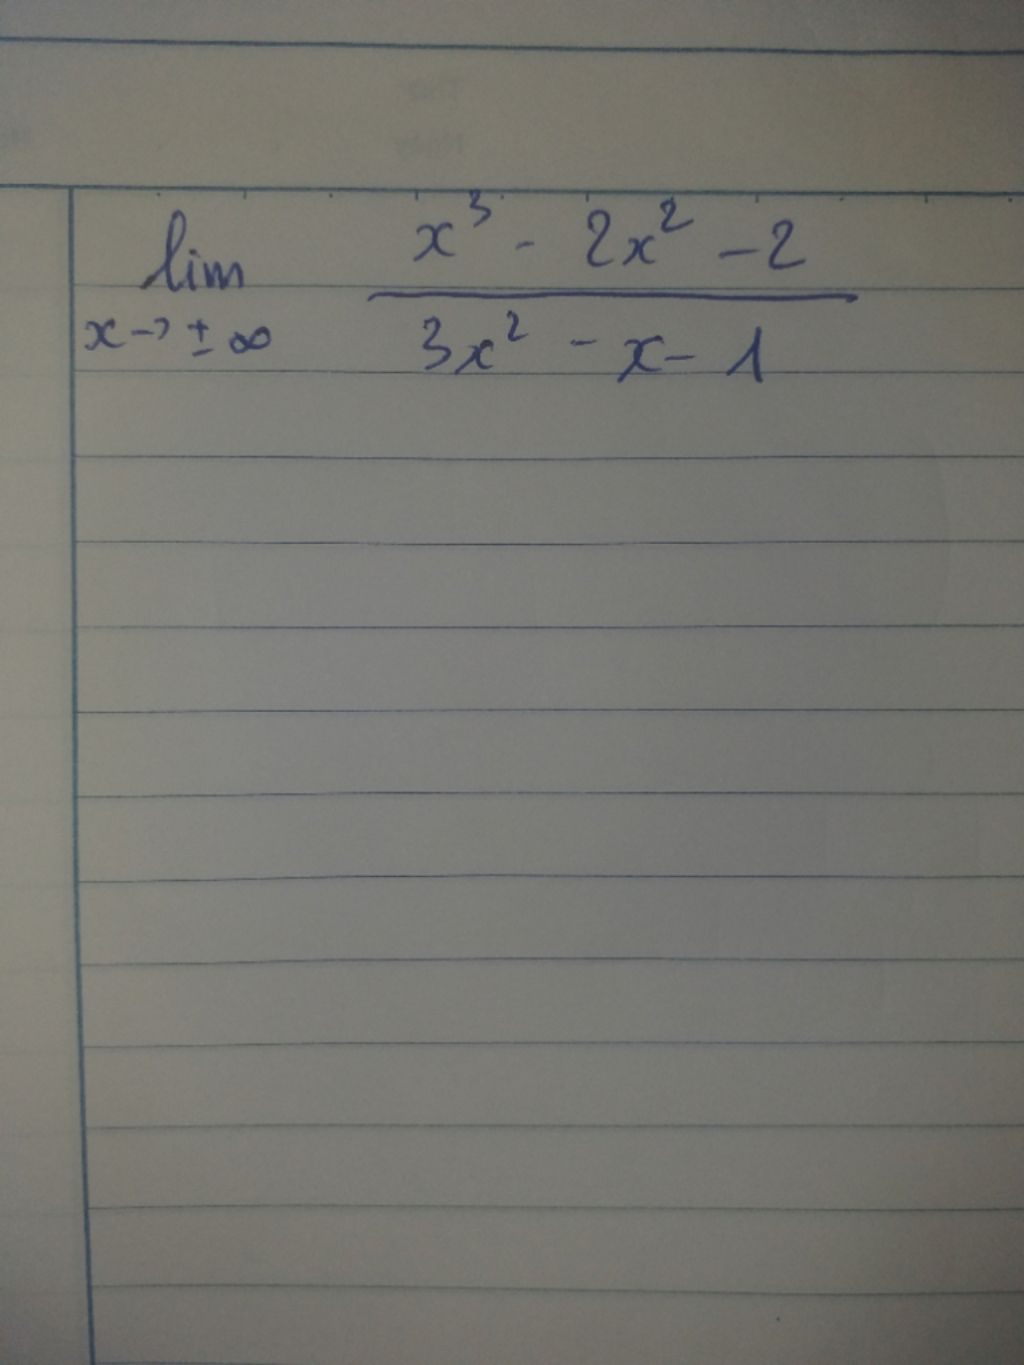 lim x³ - 2x² - 2
x → ± ∞ 3x² - x - 1